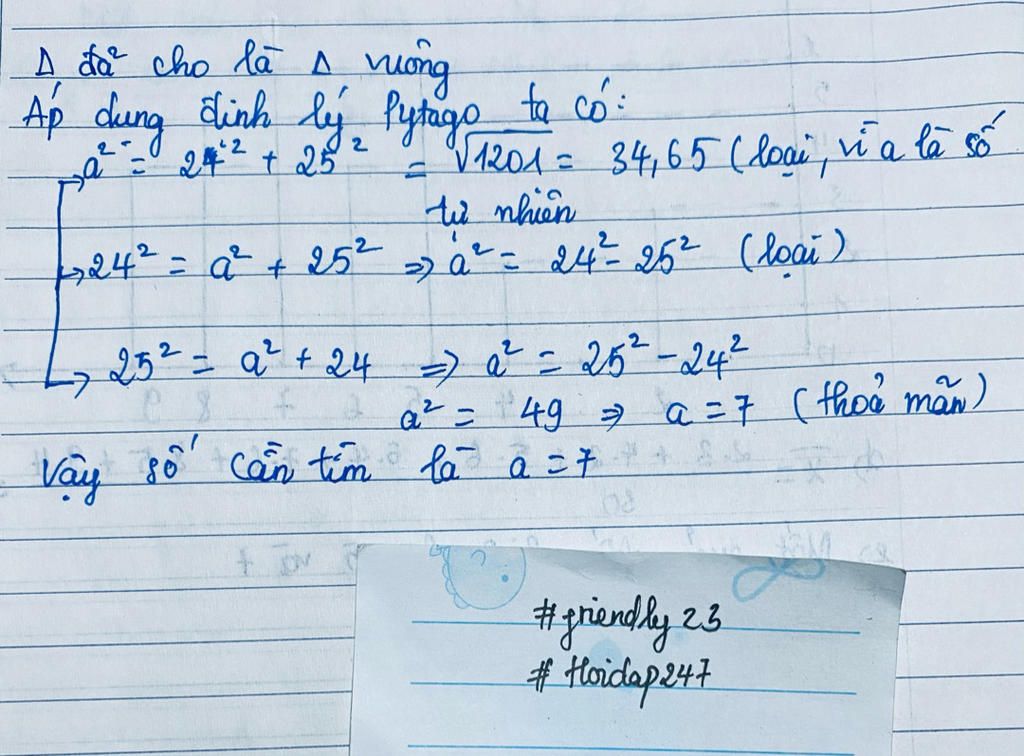 Δ đã cho là Δ vuông
Áp dụng định lý Pytago ta có:
a² = 24² + 25² = √1201 = 34,65 (loại, vì a là số
tự nhiên
24² = a² + 25² => a² = 24² - 25² (loại)
25² = a² + 24 => a² = 25² - 24²
a² = 49 => a = 7 (thoả mãn)
Vậy số cần tìm là a = 7
#friendly 23
# Hoidap247